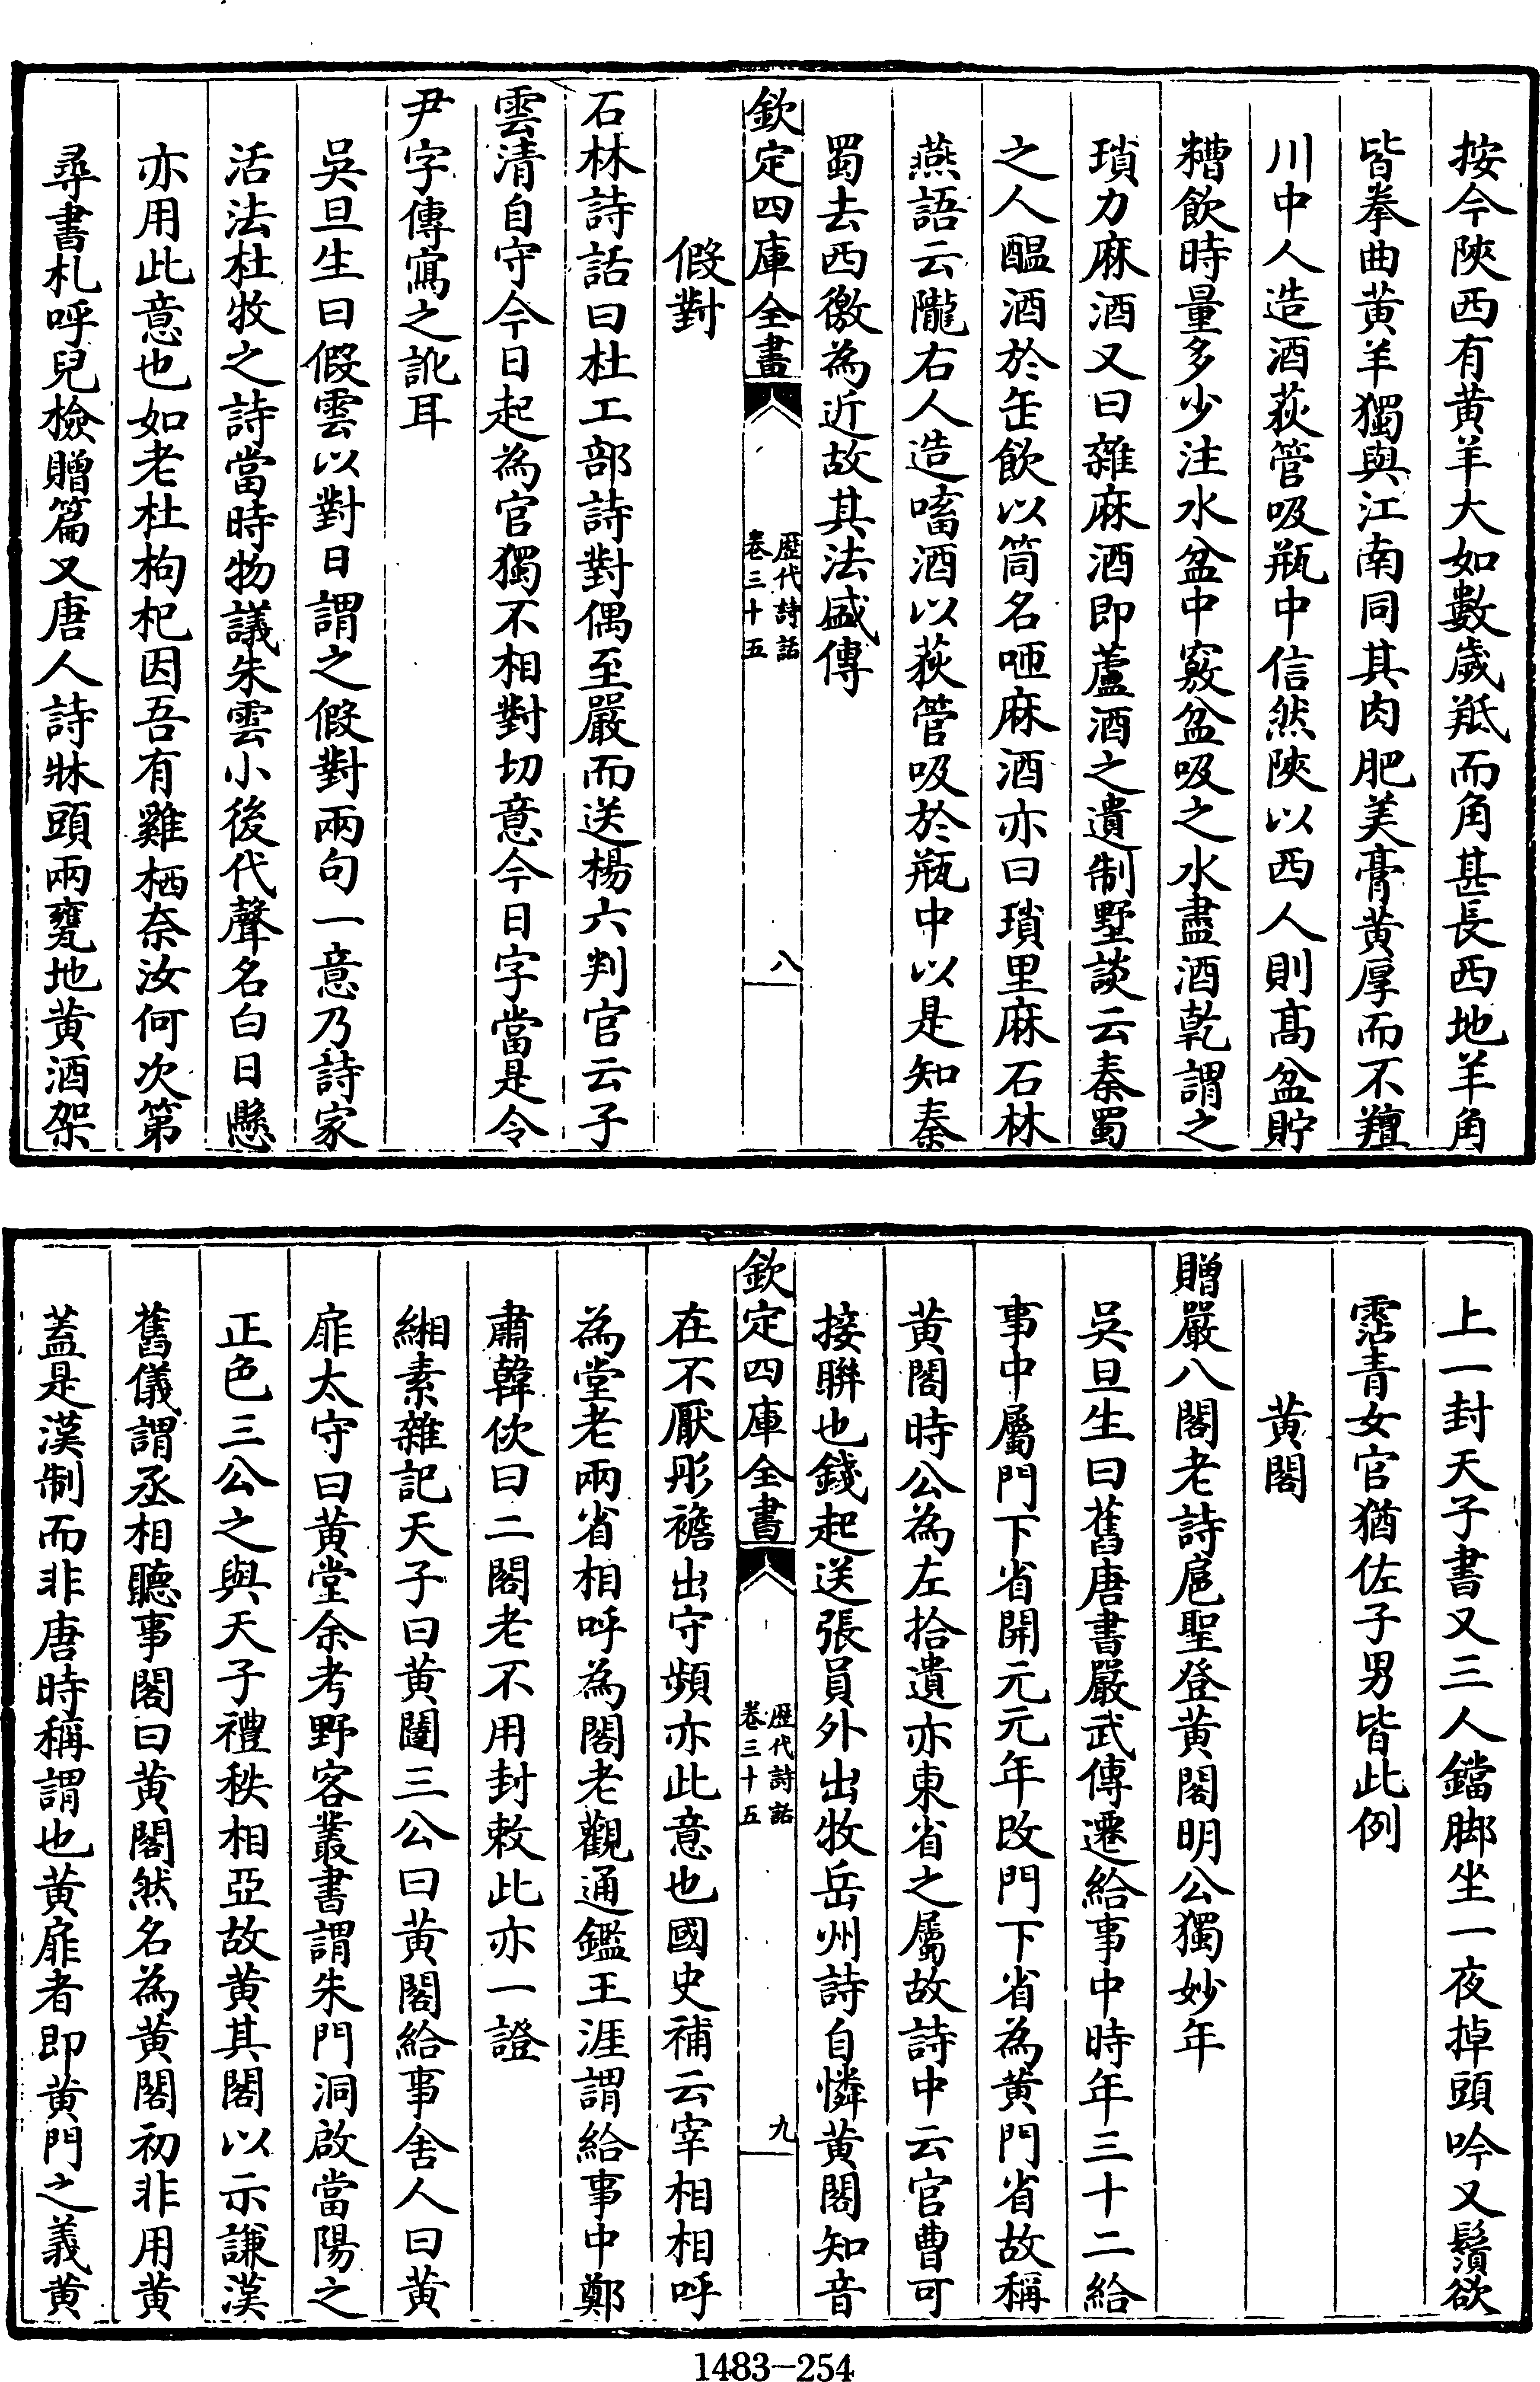 按今陝西有黄羊大如數歲羝而角甚長西地羊角
皆拳曲黄羊獨與江南同其肉肥美膏黄厚而不羶
川中人造酒荻管吸瓶中信然陝以西人則髙盆貯
糟飲時量多少注水盆中竅盆吸之水盡酒乾謂之
瑣力麻酒又曰雜麻酒即蘆酒之遺制墅談云秦蜀
之人醖酒於缶飲以筒名咂麻酒亦曰瑣里麻石林
燕語云隴右人造噾酒以荻管吸於瓶中以是知秦
蜀去西徼為近故其法盛傳
欽定四庫全書
歴代詩話
卷三十五
八
假對
石林詩話曰杜工部詩對偶至嚴而送楊六判官云子
雲清自守今日起為官獨不相對切意今日字當是令
尹字傳寫之訛耳
吳旦生曰假雲以對日謂之假對兩句一意乃詩家
活法杜牧之詩當時物議朱雲小後代聲名白日懸
亦用此意也如老杜枸杞因吾有雞栖奈汝何次第
尋書札呼兒檢贈篇又唐人詩牀頭兩甕地黄酒架
上一封天子書又三人鐺脚坐一夜掉頭吟又鬚欲
霑青女官猶佐子男皆此例
黄閣
贈嚴八閣老詩扈聖登黄閣明公獨妙年
吳旦生曰舊唐書嚴武傳遷給事中時年三十二給
事中屬門下省開元元年改門下省為黄門省故稱
黄閣時公為左拾遺亦東省之屬故詩中云官曹可
接聨也錢起送張員外出牧岳州詩自憐黄閣知音
欽定四庫全書
歴代詩話
卷三十五
九
在不厭彤襜出守頻亦此意也國史補云宰相相呼
為堂老兩省相呼為閣老觀通鑑王涯謂給事中鄭
肅韓佽曰二閣老不用封敕此亦一證
緗素雜記天子曰黄闥三公曰黄閣給事舍人曰黄
扉太守曰黄堂余考野客叢書謂朱門洞啟當陽之
正色三公之與天子禮秩相亞故黄其閣以示謙漢
舊儀謂丞相聽事閣曰黄閣然名為黄閣初非用黄
蓋是漢制而非唐時稱謂也黄扉者即黄門之義黄
1483-254